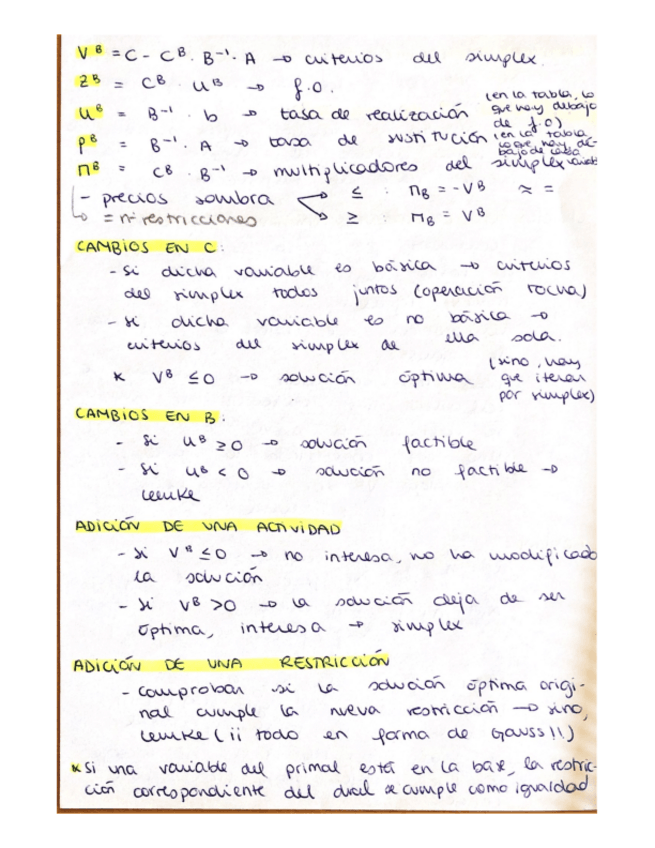 V^B = C - C^B · B^-1 · A → criterios del simplex.
Z^B = C^B · U^B → f.o.
U^B = B^-1 · b → tasa de realización (en la tabla, lo que hay debajo de f.o)
P^B = B^-1 · A → tasa de sustitución (en la tabla lo que hay debajo de cada variab
Π^B = C^B · B^-1 → multiplicadores del simplex
- precios sombra ≤ : Π_B = -V^B ≈ =
→ = nº restricciones ≥ : Π_B = V^B
CAMBIOS EN C:
- Si dicha variable es básica → criterios
del simplex todos juntos (operación tocha)
- si dicha variable es no básica →
criterios del simplex de ella sola.
* V^B ≤ 0 → solución óptima (sino, hay que iterar por simplex)
CAMBIOS EN B:
- Si U^B ≥ 0 → solución factible
- Si U^B < 0 → solución no factible →
lemke
ADICIÓN DE UNA ACTIVIDAD
- Si V^B ≤ 0 → no interesa, no ha modificado
la solución
- Si V^B > 0 → la solución deja de ser
óptima, interesa → simplex
ADICIÓN DE UNA RESTRICCIÓN
- comprobar si la solución óptima origi-
nal cumple la nueva restricción → sino,
lemke (¡¡ todo en forma de Gauss!!)
* Si una variable del primal está en la base, la restric-
ción correspondiente del dual se cumple como igualdad